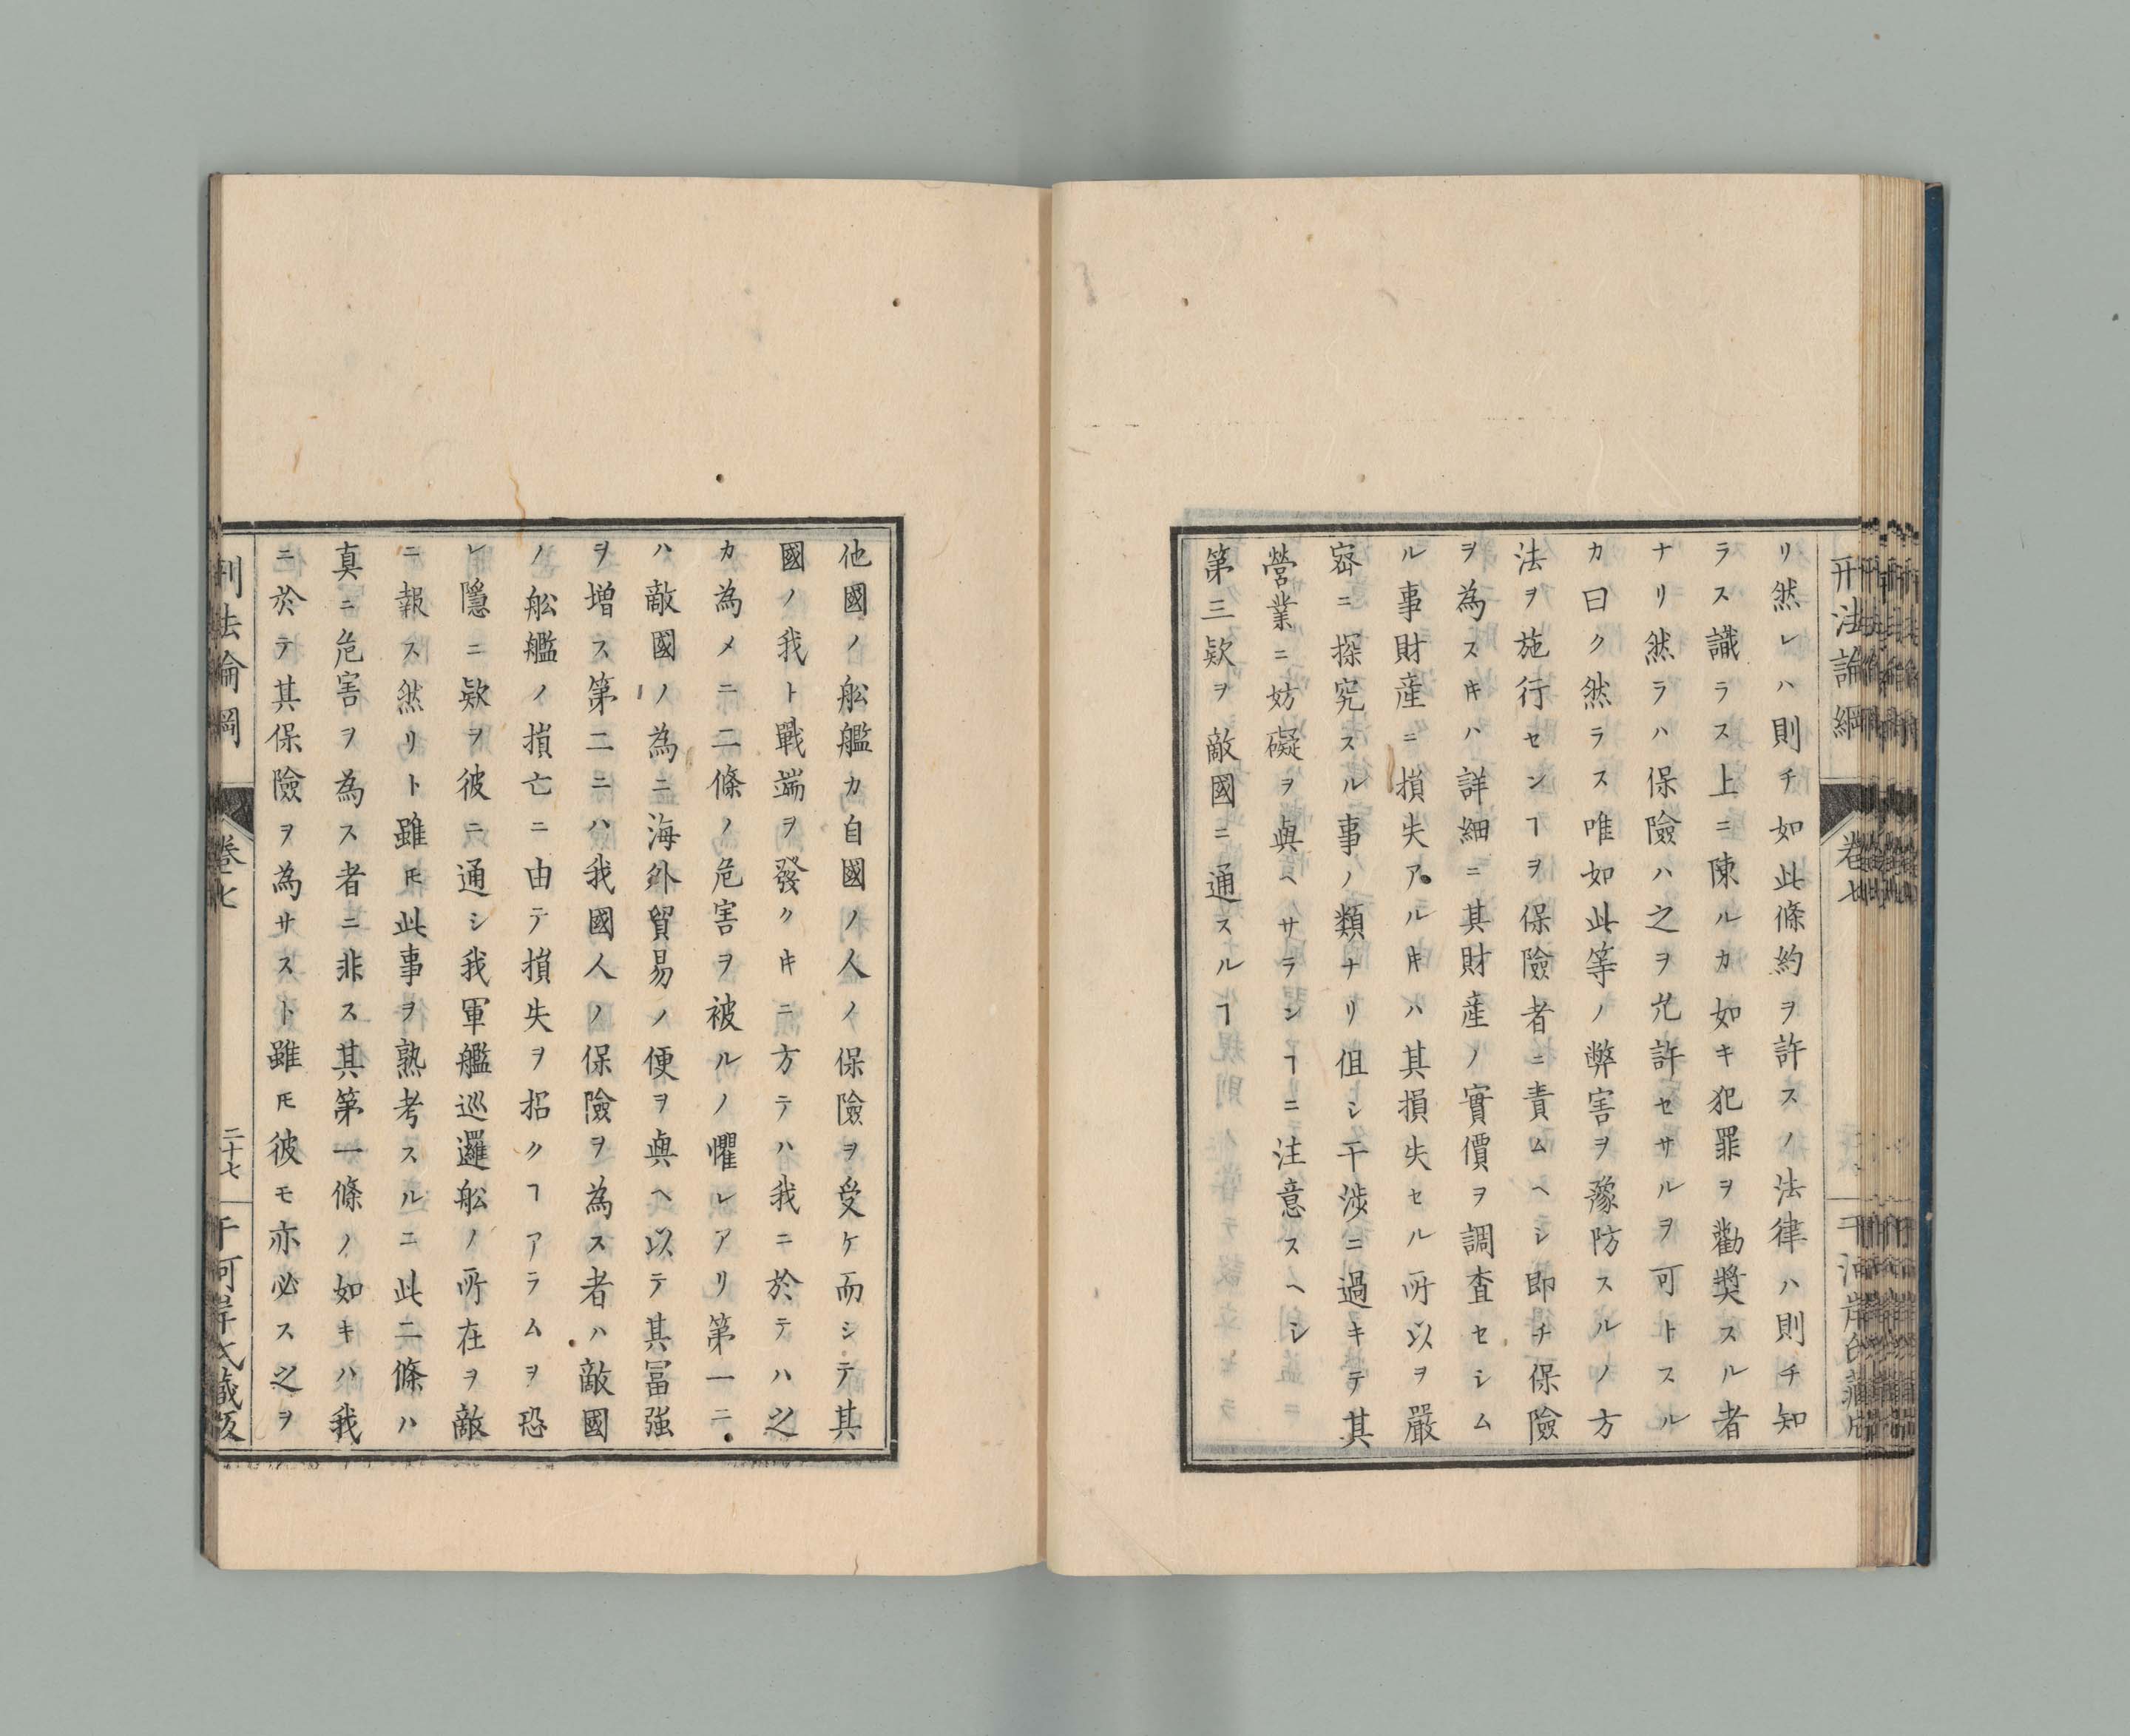 刑法論綱
卷七
リ然レハ則チ如此條約ヲ許スノ法律ハ則チ知
ラス識ラス上ニ陳ルカ如キ犯罪ヲ勸奬スル者
ナリ然ラハ保險ハ之ヲ允許セサルヲ可トスル
カ曰ク然ラス唯如此等ノ弊害ヲ豫防スルノ方
法ヲ施行センヿヲ保險者ニ責ムヘシ即チ保險
ヲ為スキハ詳細ニ其財産ノ實價ヲ調査セシム
ル事財産ニ損失アルキハ其損失セル所以ヲ嚴
密ニ探究スル事ノ類ナリ但シ干渉ニ過キテ其
營業ニ妨礙ヲ與ヘサランヿニ注意スヘシ
第三欵ヲ敵國ニ通スルヿ
他國ノ舩艦カ自國ノ人ノ保險ヲ受ケ而シテ其
國ノ我ト戰端ヲ發クキニ方テハ我ニ於テハ之
カ為メニ二條ノ危害ヲ被ルノ懼レアリ第一ニ
ハ敵國ノ為ニ海外貿易ノ便ヲ與ヘ以テ其冨強
ヲ増ス第二ニハ我國人ノ保險ヲ為ス者ハ敵國
ノ舩艦ノ損亡ニ由テ損失ヲ招クヿアラムヲ恐
レ隱ニ欵ヲ彼ニ通シ我軍艦巡邏舩ノ所在ヲ敵
ニ報ス然リト雖𪜈此事ヲ熟考スルニ此二條ハ
真ニ危害ヲ為ス者ニ非ス其第一條ノ如キハ我
ニ於テ其保險ヲ為サスト雖𪜈彼モ亦必ス之ヲ
刑法論綱
卷七
二十七